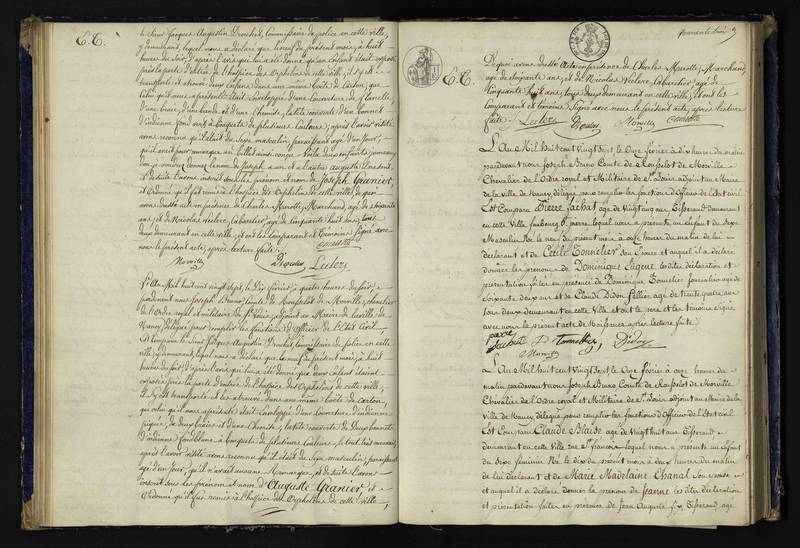 E.E.
le Sieur Jacques Augustin Drouhet, Commissaire de police en cette ville,
y demeurant, lequel nous a déclaré que le neuf du présent mois, à huit
heures du soir, d'après avis qui lui a été donné qu'un Enfant était exposé
près la porte d'entrée de l'hospice des Orphelins de cette ville, il s'y est
transporté et a trouvé deux Enfans dans une même boëte de Carton, que
celui qu'il nous a présenté était enveloppé d'une Couverture de flanelle,
d'un braie, d'une bande et d'une Chemise, la tête couverte d'un bonnet
d'indienne fond à bouquets de plusieurs Couleurs; après l'avoir visité
avons reconnu qu'il était du Sexe masculin, paraissant âgé d'un Jour,
qu'il avait pour marque un billet ainsi conçu
l'on donner le nom de Joseph a un et a l'autre auguste
et de suite l'avons inscrit sous les prénom et nom de Joseph Granier,
et ordonné qu'il fut remis à l'hospice des Orphelins de cette ville, de quoi
avons dressé acte en présence de Charles Marotte, Marchand, agé de soixante
ans, et de Nicolas Leclere, Cabaretier, agé de Cinquante huit ans, tous
deux demeurant en cette ville, et ont les Comparant et Témoins Signé avec
nous le présent acte, après lecture faite.
Leclere
L'an Mil huit cent vingt sept, le Dix février, à quatre heures du soir,
pardevant nous Joseph Bruno, Comte de Rousselot de Morville, chevalier
de l'Ordre royal et militaire de St Louis, adjoint au Maire de la ville de
Nancy, délégué pour remplir les fonctions d'Officier de l'Etat Civil,
Est comparu le Sieur Jacques Augustin Drouhet, Commissaire de police en cette
ville, y demeurant, lequel nous a déclaré que le neuf du présent mois, à huit
heures du soir, d'après avis qui lui a été donné que deux Enfans étaient
exposés près la porte d'entrée de l'hospice des Orphelins de cette ville,
il s'y est transporté et les a trouvé dans une même boëte de carton,
que celui qu'il nous a présenté était enveloppé d'une Couverture d'indienne
piquée, de deux braies et d'une Chemise, la tête couverte de deux bonnets
d'indienne fond blanc à bouquets de plusieurs Couleurs,
après l'avoir visité avons reconnu qu'il était du Sexe masculin, paraissant
agé d'un Jour, qu'il n'avait aucune Remarque, et de suite l'avons
inscrit sous les prénom et nom d'Auguste Granier, et
Ordonné qu'il fut remis à l'hospice des Orphelins de cette ville,
E.E.
De quoi avons dressé Acte en présence de Charles Marotte, Marchand,
agé de soixante ans, et de Nicolas Leclere, Cabaretier, agé de
Cinquante huit ans, tous deux demeurant en cette ville, et ont les
Comparant et témoins Signé avec nous le présent acte, après lecture
faite.
Leclere
L'An Mil huit cent vingt Sept le Onze février à dix heures du matin
pardevant nous Joseph Bruno Comte de Rousselot de Morville
Chevalier de l'Ordre royal et Militaire de St Louis adjoint au Maire
de la ville de Nancy délégué pour remplir les fonctions d'Officier de l'Etat civil
Est Comparu Pierre Lachat agé de vingt cinq ans, Tisserand demeurant
en cette ville faubourg St pierre, lequel nous a présenté un Enfant du Sexe
Masculin Né le neuf du présent mois à onze heures du matin de lui
déclarant et de Cécile Tonnelier son Epouse et auquel il a déclaré
donner les prénoms de Dominique Eugène lesdites déclaration et
présentation faites en présence de Dominique Tonnelier agé de
soixante deux ans et de Claude Didon Sellier agé de trente quatre ans
tous deux demeurant en cette ville et ont le père et les témoins signé
avec nous le présent acte de Naissance après lecture faite.
pierre
Lachat D. Tonnellier, Didon
L'An Mil huit cent vingt Sept le Onze février à onze heures du
matin pardevant nous Joseph Bruno Comte de Rousselot de Morville
Chevalier de l'Ordre royal et Militaire de St Louis adjoint au Maire de la
ville de Nancy délégué pour remplir les fonctions d'Officier de l'Etat civil
Est Comparu Claude Blaise agé de vingt huit ans Tisserand
demeurant en cette ville rue St françois lequel nous a présenté un Enfant
du Sexe féminin Né le dix du présent mois à deux heures du matin
de lui déclarant et de Marie Madelaine Chanal son Epouse
et auquel il a déclaré donner le prénom de Jeanne lesdites déclaration
et présentation faites en présence de Jean Auguste Tisserand, agé